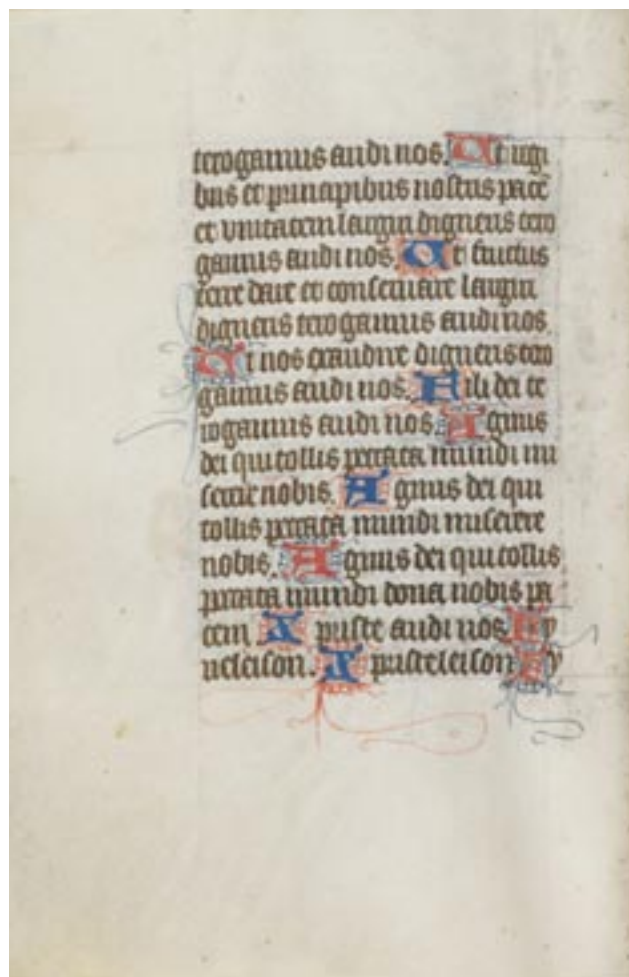 terogamus audi nos. Ut regi
bus et principibus nostris pacē
et unitatem largiri digneris tero
gamus audi nos. Ut fructus
terre dare et conseruare largiri
digneris terogamus audi nos.
Ut nos exaudire digneris tero
gamus audi nos. Fili dei te
rogamus audi nos. Agnus
dei qui tollis peccata mundi mi
serere nobis. Agnus dei qui
tollis peccata mundi miserere
nobis. Agnus dei qui tollis
peccata mundi dona nobis pa
cem Xpriste audi nos. Ky
rieleison. Xpristeleison Ky